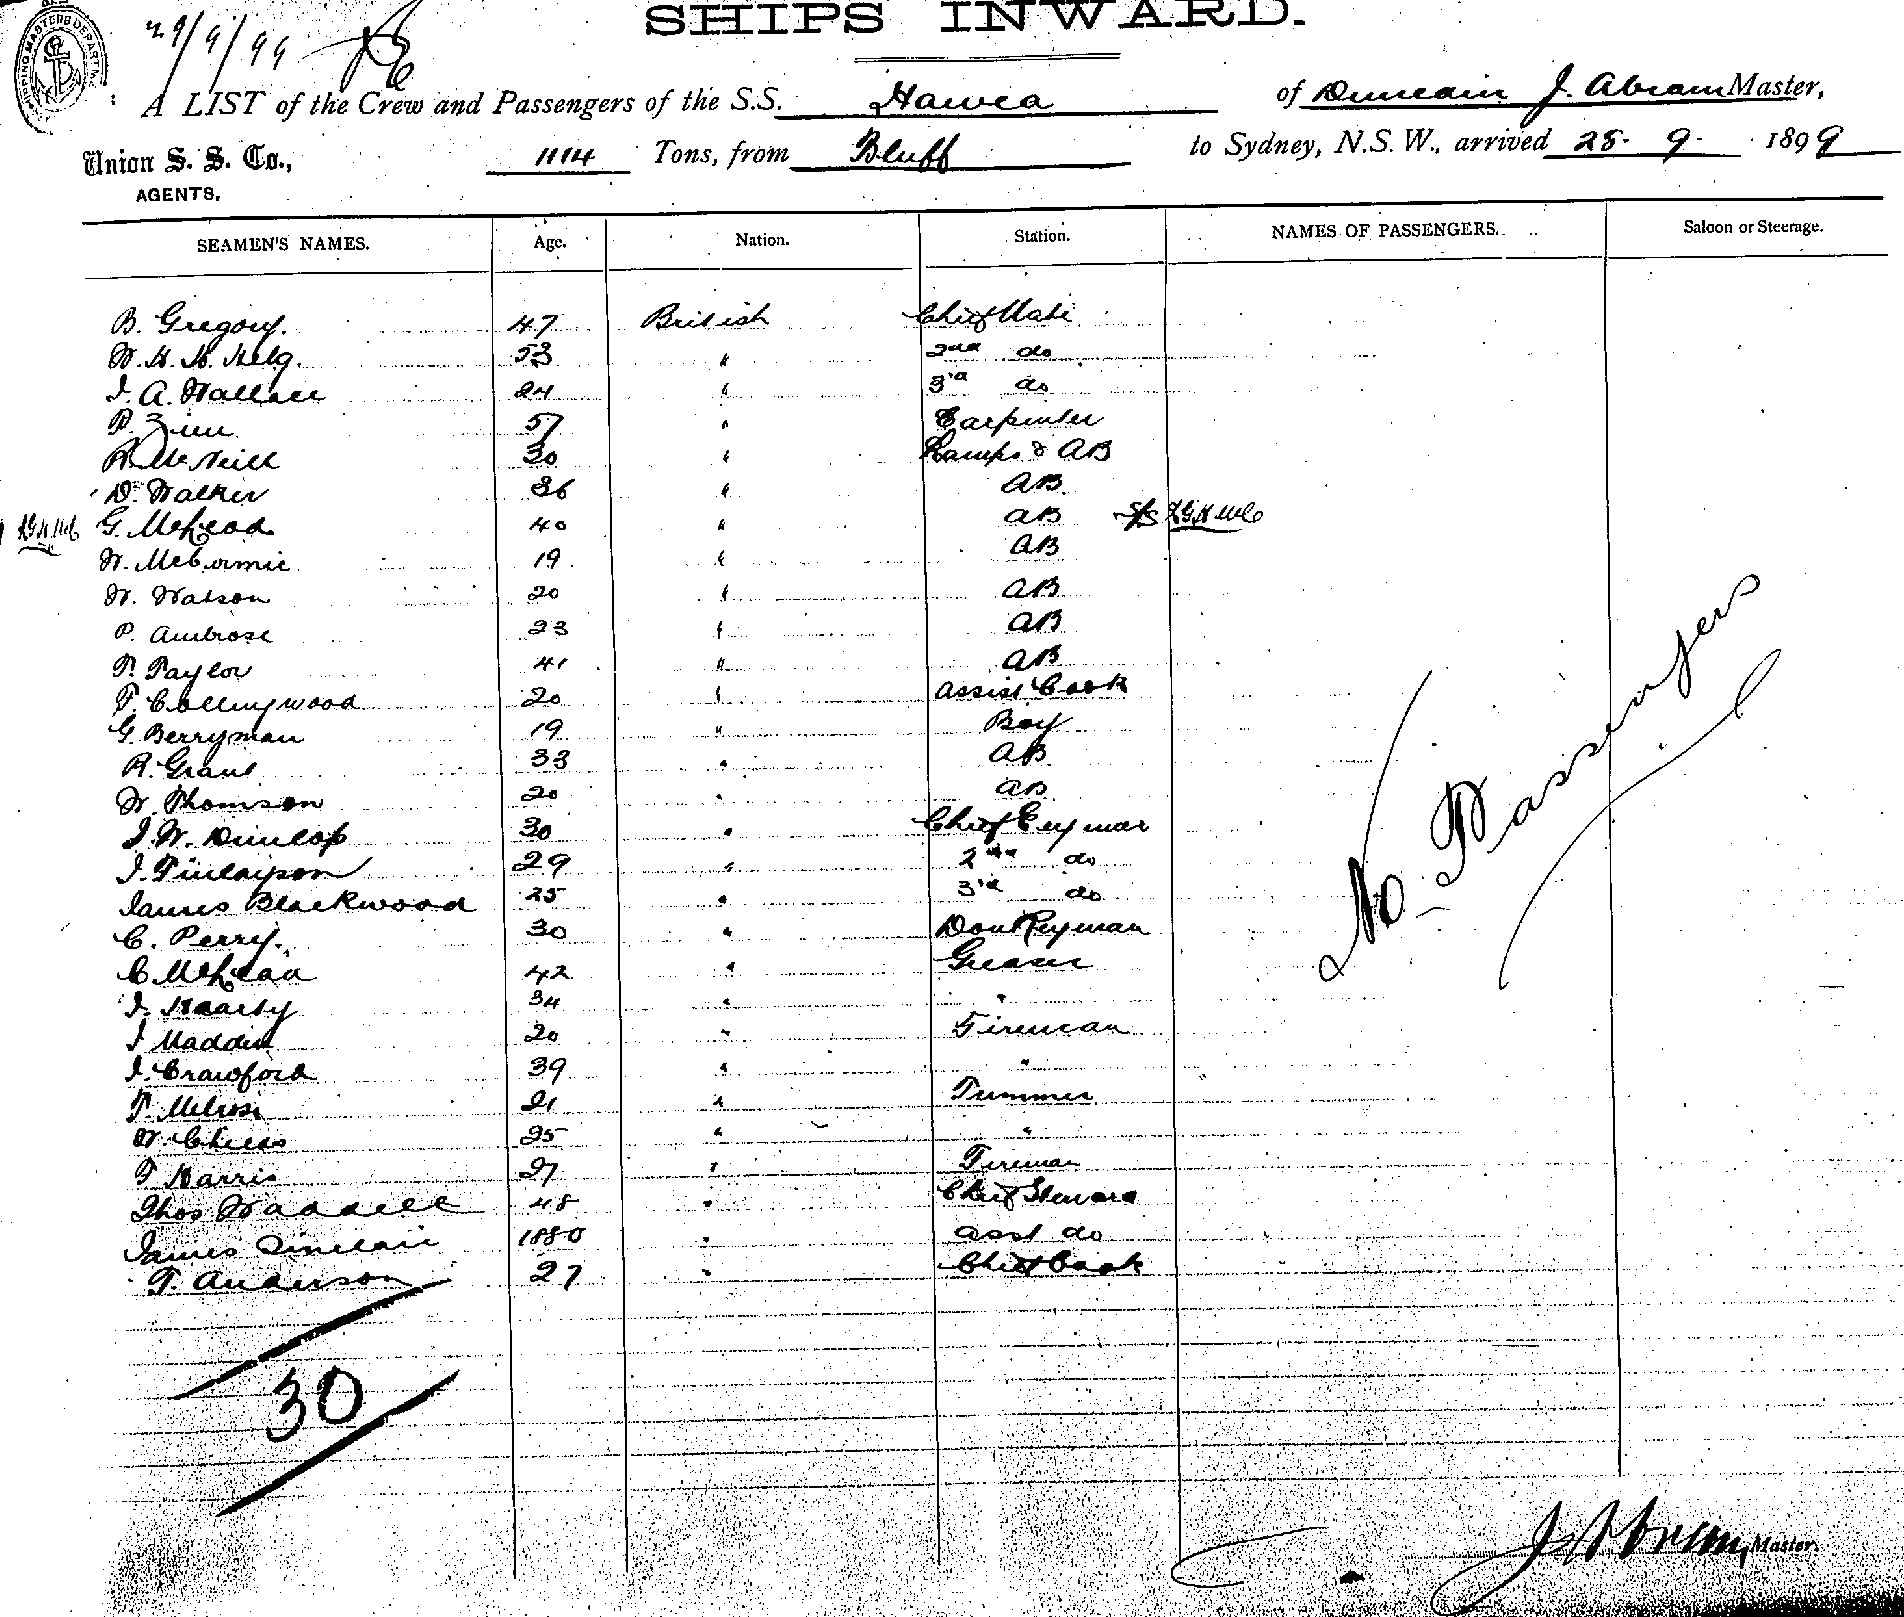 SHIPS INWARD.
29/9/99
A LIST of the Crew and Passengers of the S.S. Hawea of Duncain J. Abram Master,
Union S. S. Co., 1114 Tons, from Bluff to Sydney, N.S.W., arrived 28. 9. 1899
AGENTS.
SEAMEN'S NAMES. Age. Nation. Station. NAMES OF PASSENGERS. Saloon or Steerage.
B. Gregory. 47 British Chief Mate
53 " 2nd do
J. A. Wallace 24 " 3rd do
P. 57 " Carpenter
R. McNeill 30 " Lamps & AB
D. Walker 36 " AB
G. McLeod 40 " AB
W. McCormic 19 " AB
W. Watson 20 " AB
P. Ambrose 23 " AB
T. Taylor 41 " AB
T. Collingwood 20 " Assist Cook
G. Berryman 19 " Boy
R. Grant 33 " AB
W. Thomson 20 " AB
J. W. Dunlop 30 " Chief
J. Finlayson 29 " 2nd do
James Blackwood 25 " 3rd do
C. Perry. 30 " Donkeyman
C. McLean 42 " Greaser
J. 34 " "
J Madden 20 " Fireman
J. Crawford 39 " "
T. Melrose 21 " Trimmer
W. 25 " "
T Harris 27 " Fireman
Thos Waddell 48 " Chief Steward
James Sinclair 1880 " asst do
T. Anderson 27 " Chief Cook
No Passengers
30
J Abram, Master.